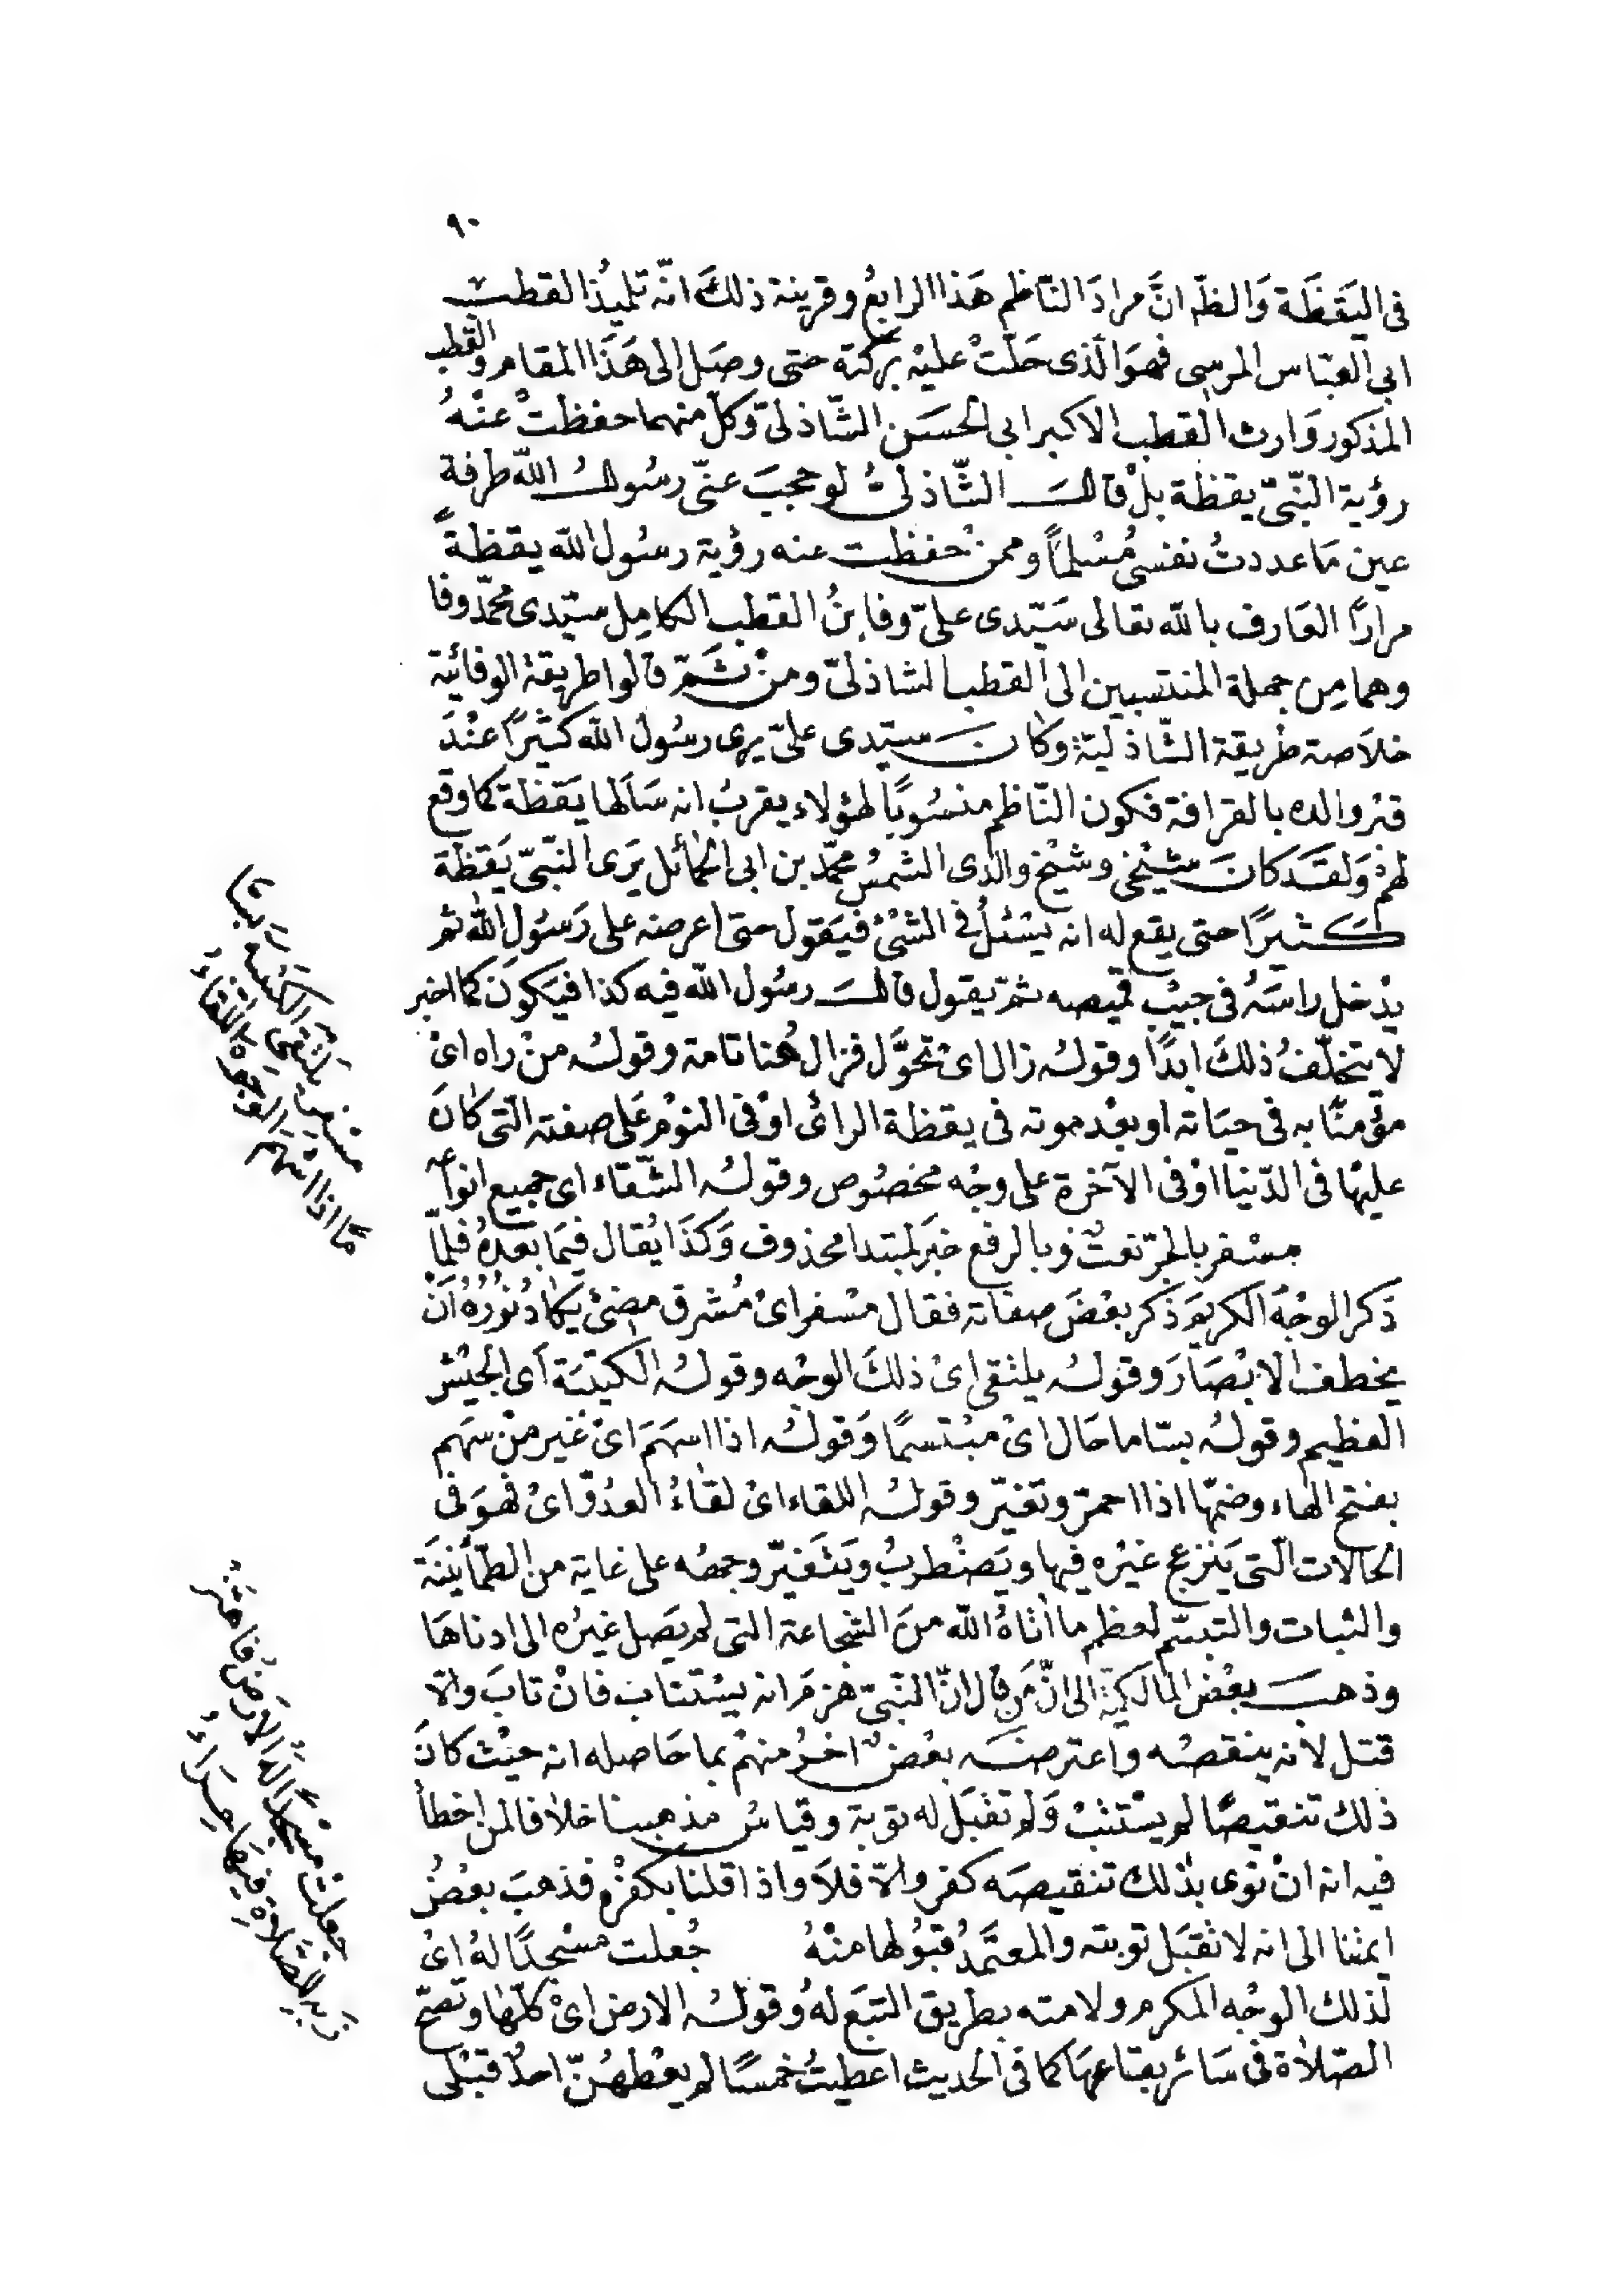 ٩٠
فى اليَقظَة وَالظّ انَّ مرادَ النّاظم هَذا الرابعُ وقرينة ذلكَ انّه تلميذُ القطب
ابى العبّاس المرسى فهوَ الّذى حَلّتْ عليْه بركته حتى وصَل الى هَذَا المقام والقطب
المذكور وَارث القطب الاكبر ابى الحسَن الشّاذلىّ وكلّ منهما حفظتْ عنْهُ
رؤية النّبىّ يقظة بلْ قالَ الشّاذلىُّ لو حجبَ عنّى رسُولُ اللّه طرفة
عين مَا عددتُ نفسى مُسْلماً وممنْ حفظت عنه رؤية رسُول اللّه يقظةً
مرارًا العَارف باللّه تعالى سَيّدى علىّ وفا بنُ القطب الكامِل سيّدى محمّد وفا
وهما مِن جملة المنتسبين الى القطب الشاذلىّ ومنْ ثَمّ قالوا طريقة الوفائية
خلاَصة طريقة الشّاذليّة وكانَ سيّدى علىّ يرى رسُول اللّه كثيرًا عنْدَ
قبْر والده بالقرافة فكون النّاظم منسُوبًا لهؤلاء يقربُ انه سَالها يَقظة كما وقع
لهمْ وَلقَد كانَ شيْخى وشيْخ والدى الشمسُ محمّد بن ابى الحمائل يَرَى النّبىّ يَقظة
كثيرًا حتى يقع له انه يسْئلُ فى الشئْ فيَقول حتى اعرضه على رَسُول اللّه ثم
يدْخل راسَهُ فى جيْب قميصه ثمّ يقول قالَ رسُول اللّه فيه كذا فيَكون كما اخبر
لا يتخلّفُ ذلكَ ابدًا وقولهُ زال اىْ تحوَّل فزال هُنا تامة وقولهُ منْ راه اىْ
مؤمنًا به فى حيَاته او بعْد موته فى يقظة الرائى اوْ فى النوْم عَلى صفته الّتى كانَ
عليْها فى الدّنيا اوْ فى الآخرة على وجْه مخصُوص وقولهُ الشّقاء اى جميع انواعه
مسْفر بالجرّ نعتٌ وبالرفع خبَر لمبتدا محذوف وَكذَا يُقال فيمَا بعدهُ فلمّا
ذَكر الوجْهَ الكريمَ ذكر بعْضَ صفاته فقال مسْفر اىْ مُشرق مضئْ يكادُ نُورُهُ اَنْ
يخطف الابْصَارَ وقولهُ يلتقى اىْ ذلكَ الوجْه وقولهُ الكتيبَة اَى الجيْش
العظيم وقولهُ بسّاما حَال اىْ مبْتسمًا وَقولهُ اذا اسهَمَ اىْ غير منْ سَهم
بفتح الهاء وضمّها اذا احمرّ وتغيّر وقولهُ اللقاء اىْ لقاءُ العدُوّ اىْ فهوَ فى
الحالات الّتى يَنزعج غيْره فيها ويَضْطربُ ويَتَغيّر وجهُه على غاية من الطمَأنينَة
والثبات والتبسّم لعظم ما اتاهُ اللّه منَ الشجاعة التى لم يَصل غيرُه الى ادناهَا
وذهبَ بعْضُ المالكيّة الى انّ مَن قال انّ النّبىّ هزمَ انه يسْتتاب فانْ تابَ والاّ
قتل لانه ينقصُه واعترضَه بعْضٌ اخرُ منهمْ بما حَاصله انه حيْث كانَ
ذلك تنقيصًا لم يسْتتبْ وَلم تقبَل له توبة وقياسُ مذهبنا خلافا لمن اخطأ
فيه انه انْ نوَى بذلك تنقيصَه كفر والاّ فلاَ واذا قلنا بكفرْه فذهبَ بعْضُ
ايمتنا الى انه لا تقبَل توبته والمعتَمدُ قبُولها منْهُ جُعلت مسْجدًا لهُ اىْ
لذلك الوجْه المكرم ولامته بطريق التبَع لهُ وقولهُ الارض اىْ كلّها وتصحّ
الصّلاة فى سَائر بقاعهَا كما فى الحديث اعطيتُ خمسًا لم يعْطهُنّ احدٌ قبْلى
مسْفرٍ يَلتَقى الكَتيبَة بسّا
مًا اذا اسْهمَ الوُجوهَ اللّقاءُ
جعلتْ مسْجدًا لهُ الارْضُ فاهتَزّ
زَ بهِ للصَّلاةِ فيهَا حِرَاءُ